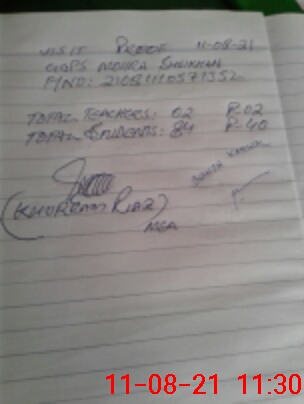 VISIT PROOF 11-08-21
GGPS MOHRA SHEIKHAN
PIND: 21051110571352
TOTAL TEACHERS: 02 P-02
TOTAL STUDENTS: 84 P-40
(KHURRAM RIAZ)
MEA
11-08-21 11:30